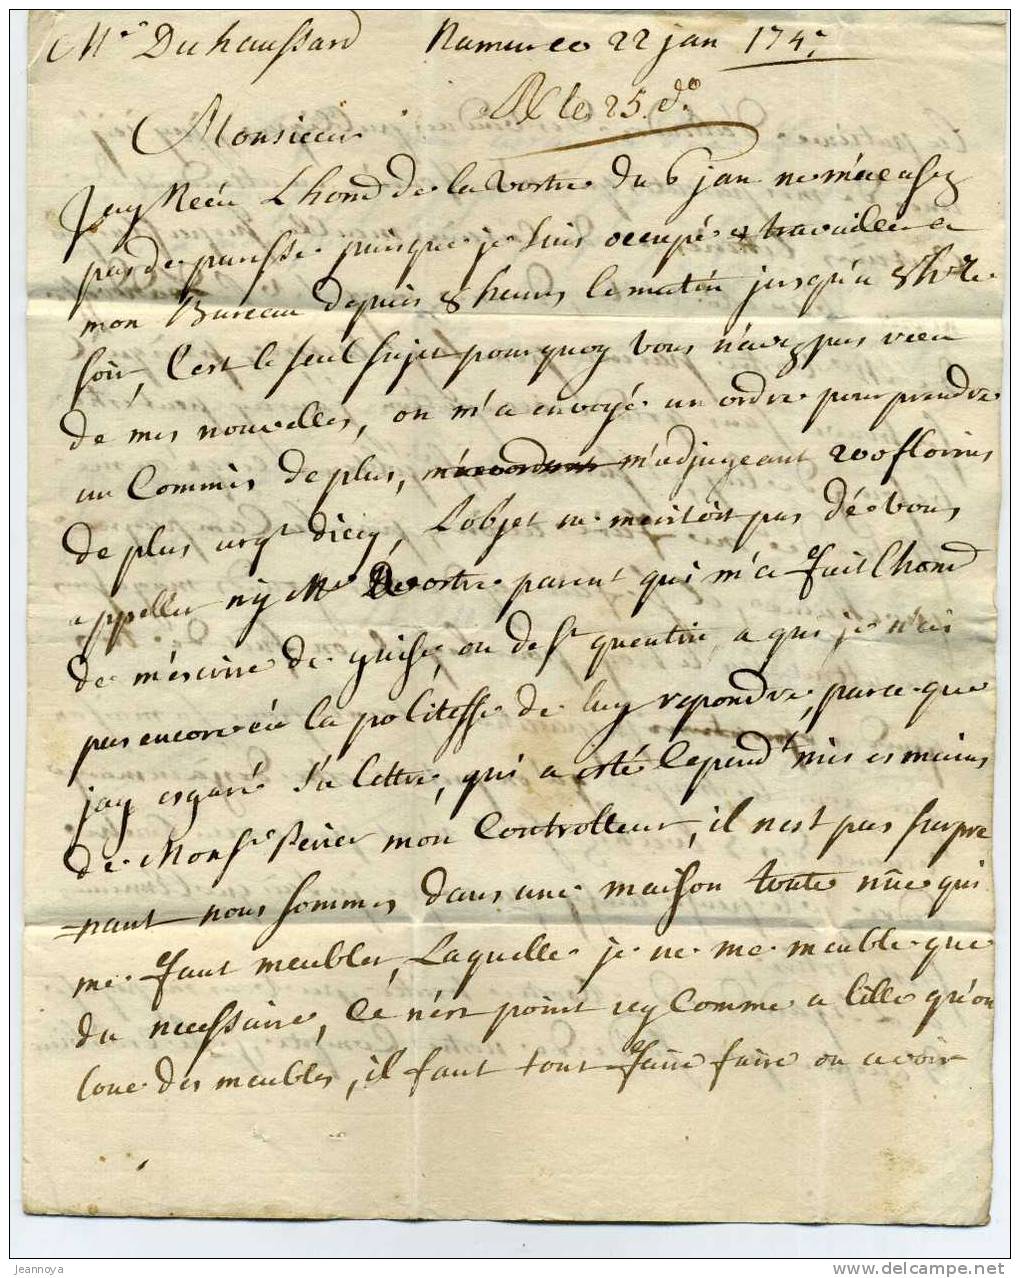 Mr Duhaussard Namur ce 22 jan 1747
R le 25 do
Monsieur
Jay Recu Lhond de la vostre du 6 jan ne m'acusez
pas de paresse puisque je suis occupé a travailler a
mon Bureau depuis 8 heures le matin jusqu'a 8 hr le
soir, C'est le seul sujet pourquoy vous n'avez pas reeu
de mes nouvelles, on m'a envoyé un ordre pour prendre
un Commis de plus, m'adjugeant 200 florins
de plus argt dicy, L'objet ne meritoit pas dé vous
appeller ny Mr vostre parent qui m'a fait Lhond
de m'escrire de guise, ou de St quentin a qui je n'ai
pas encore eü la politesse de luy repondre, parce que
jay esgaré sa lettre, qui a esté Cependt mis es mains
de Monsr perier mon Controlleur, il nest pas surpre
=nant nous sommes dans une maison toute nüe qui
me faut meubler, Laquelle je ne me meuble que
du necessaire, Cé n'est point icy Comme a lille qu'on
loue des meubles, il faut tout faire faire ou avoir
jeannoya
delcampe.net